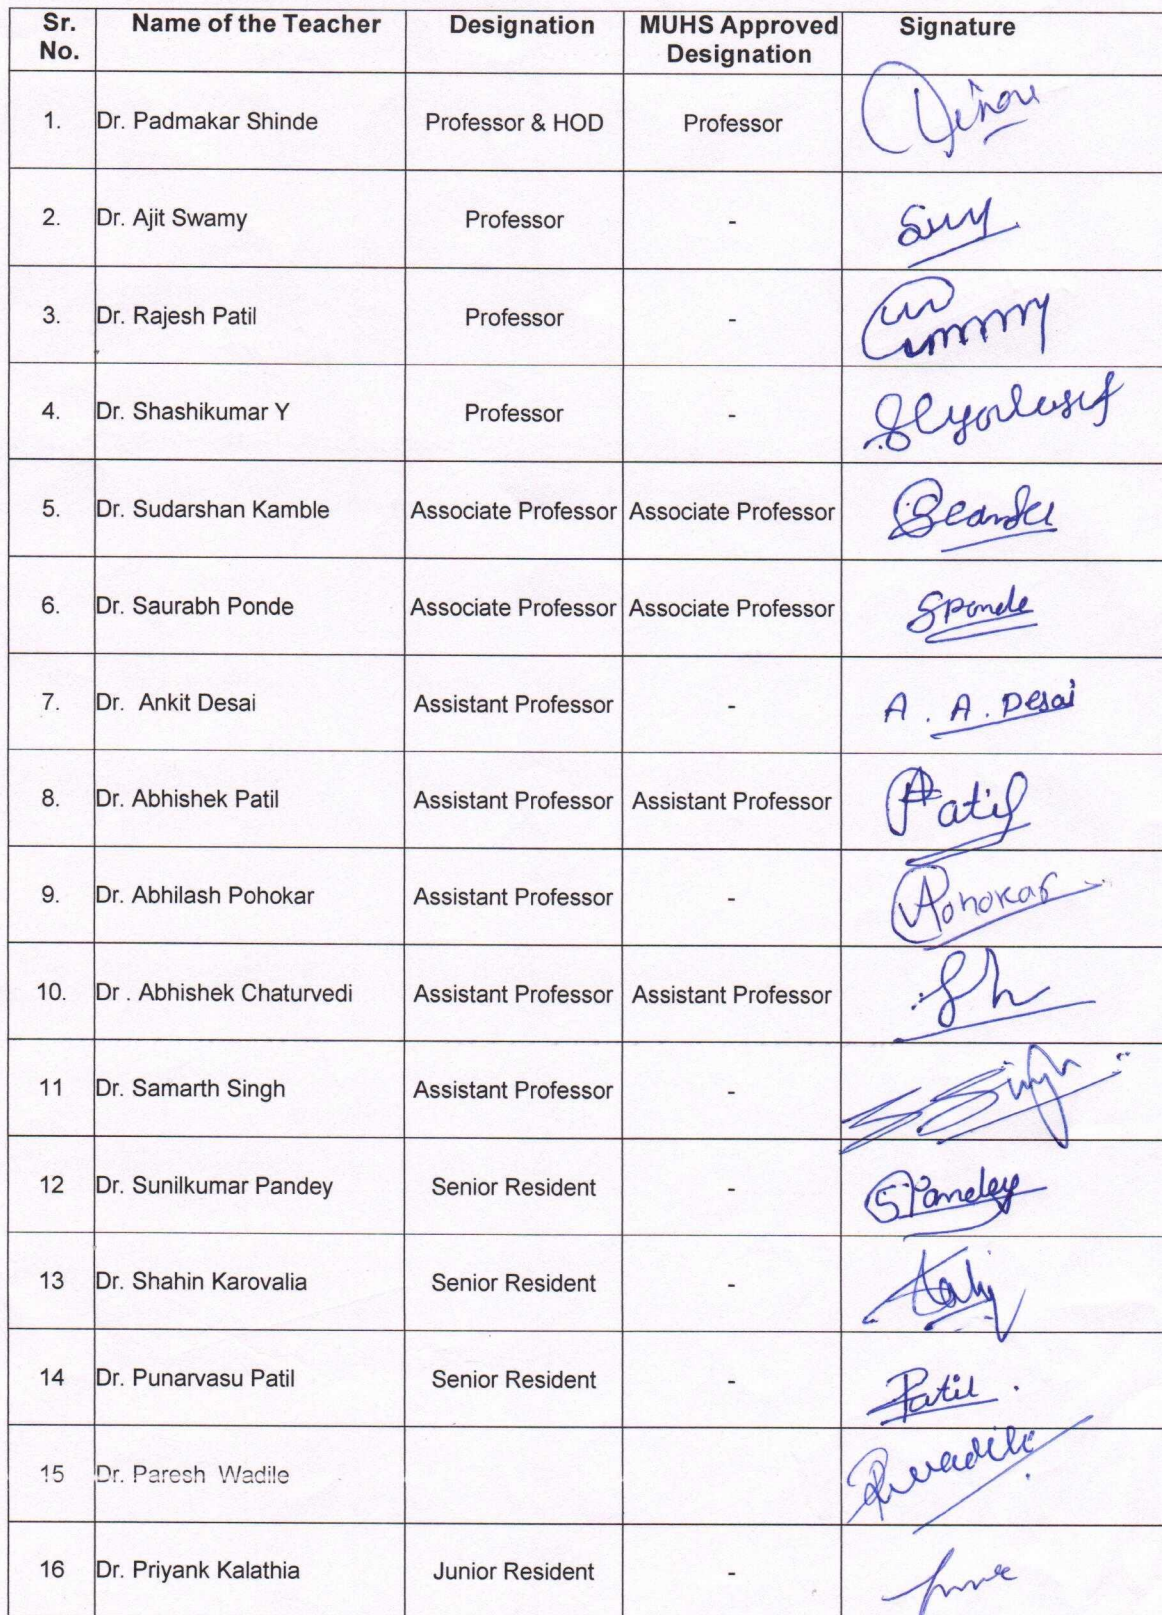 Sr. No. Name of the Teacher Designation MUHS Approved Designation Signature
1. Dr. Padmakar Shinde Professor & HOD Professor
2. Dr. Ajit Swamy Professor -
3. Dr. Rajesh Patil Professor -
4. Dr. Shashikumar Y Professor -
5. Dr. Sudarshan Kamble Associate Professor Associate Professor
6. Dr. Saurabh Ponde Associate Professor Associate Professor Sponde
7. Dr. Ankit Desai Assistant Professor - A. A. Desai
8. Dr. Abhishek Patil Assistant Professor Assistant Professor Patil
9. Dr. Abhilash Pohokar Assistant Professor - Pohokar
10. Dr . Abhishek Chaturvedi Assistant Professor Assistant Professor
11 Dr. Samarth Singh Assistant Professor - S Singh
12 Dr. Sunilkumar Pandey Senior Resident - SPandey
13 Dr. Shahin Karovalia Senior Resident -
14 Dr. Punarvasu Patil Senior Resident - Patil.
15 Dr. Paresh Wadile Pwadile
16 Dr. Priyank Kalathia Junior Resident -